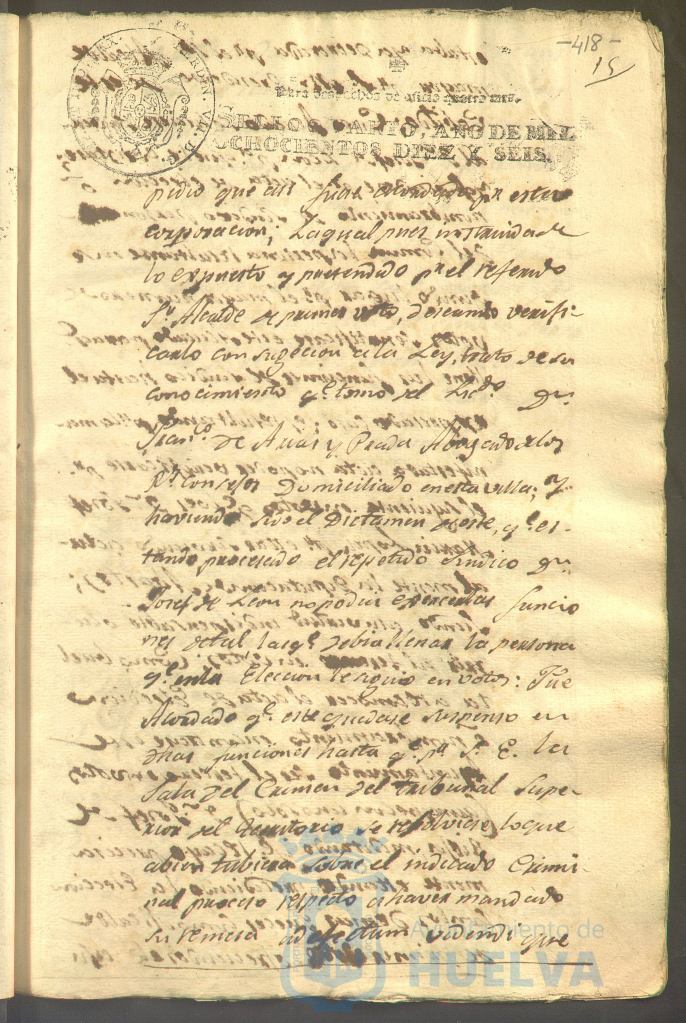 -418-
15
Para despachos de oficio quatro mrs.
SELLO QUARTO, AÑO DE MIL
OCHOCIENTOS DIEZ Y SEIS.
pidió que asi fuese acordado pr esta
corporacion; La qual pues instruida de
lo expuesto y pretendido pr el referido
Sr. Alcalde de primer voto, deseando verifi-
carlo con sugecion a la Ley, trató de su
conocimiento qe tomó del Licdo Dn
Franco de Arias y Prada Abogado de los
Rs Consejos Domiciliado en esta villa; y
haviendo sido el Dictamen de este, qe es-
tando procesado el repetido Sindico Dn
Josef de Leon no podia exercer las funcio
nes de tal las qe debia llenar la persona
qe en la Eleccion le siguió en votos: Fue
Acordado qe este quedase suspenso en
dhas funciones hasta qe pr S. E. la
Sala del Crimen del tribunal Supe-
rior del territorio se resolviese lo que
abien tubiera sobre el indicado Crimi-
nal proceso respecto a haver mandado
su remesa ad efectum videndi que
Ayuntamiento de
HUELVA